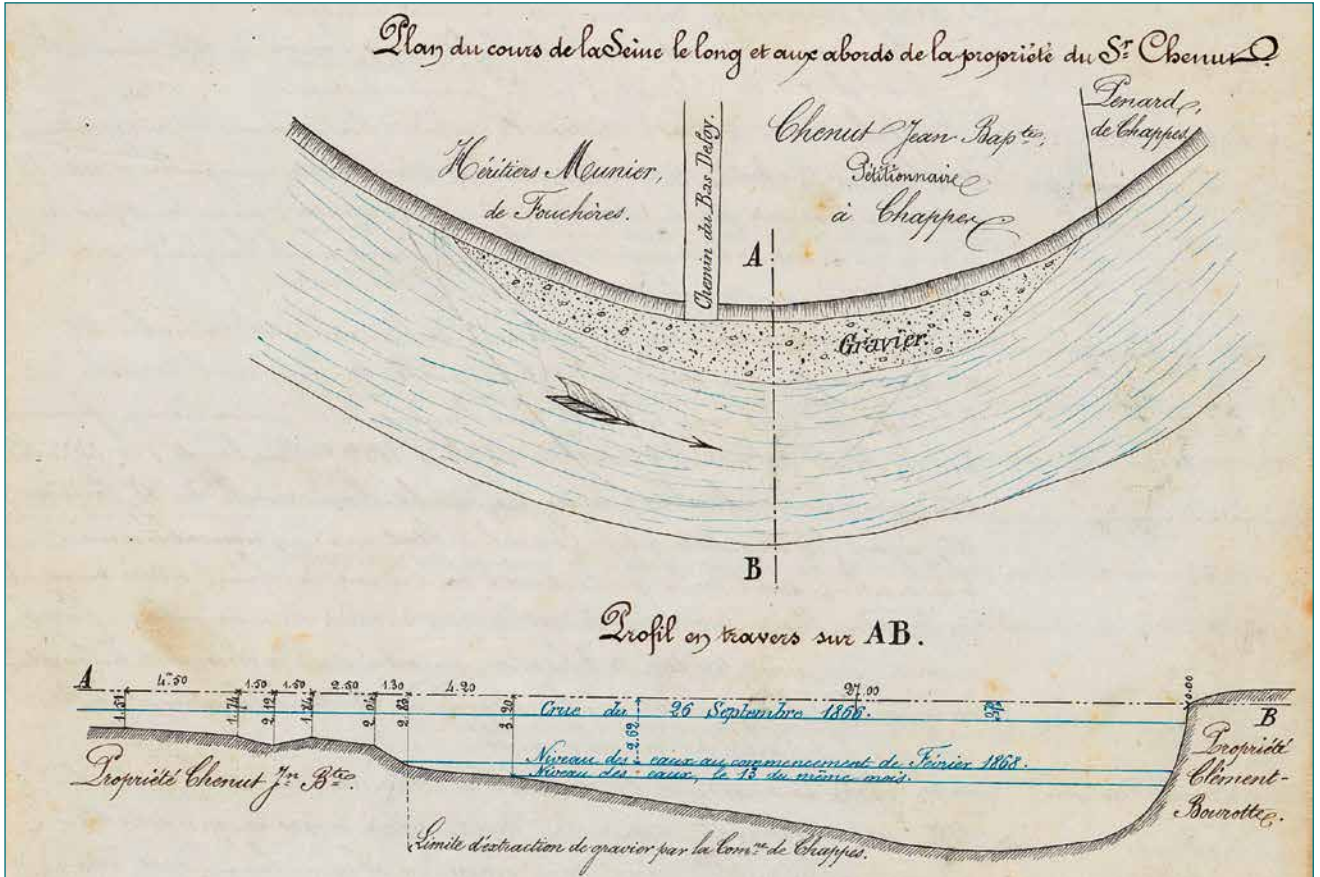 Plan du cours de la Seine le long et aux abords de la propriété du Sr. Chenut
Héritiers Meunier,
de Fouchères.
Chemin du Bas Defoy.
Chenut Jean Bapte,
Pétitionnaire
à Chappes
Penard,
de Chappes.
A
Gravier.
B
Profil en travers sur AB.
A
4m.50
1.50
1.50
2.50
1.30
4.20
27.00
1.51
1.74
2.12
1.74
2.04
2.83
3.20
2.62
0.00
B
Crue du 26 Septembre 1866.
Niveau des eaux au commencement de Février 1868.
Niveau des eaux, le 13 du même mois.
Propriété Chenut Jn. Bte.
Propriété
Clément-
Bourotte.
Limite d'extraction de gravier par la Comne de Chappes.